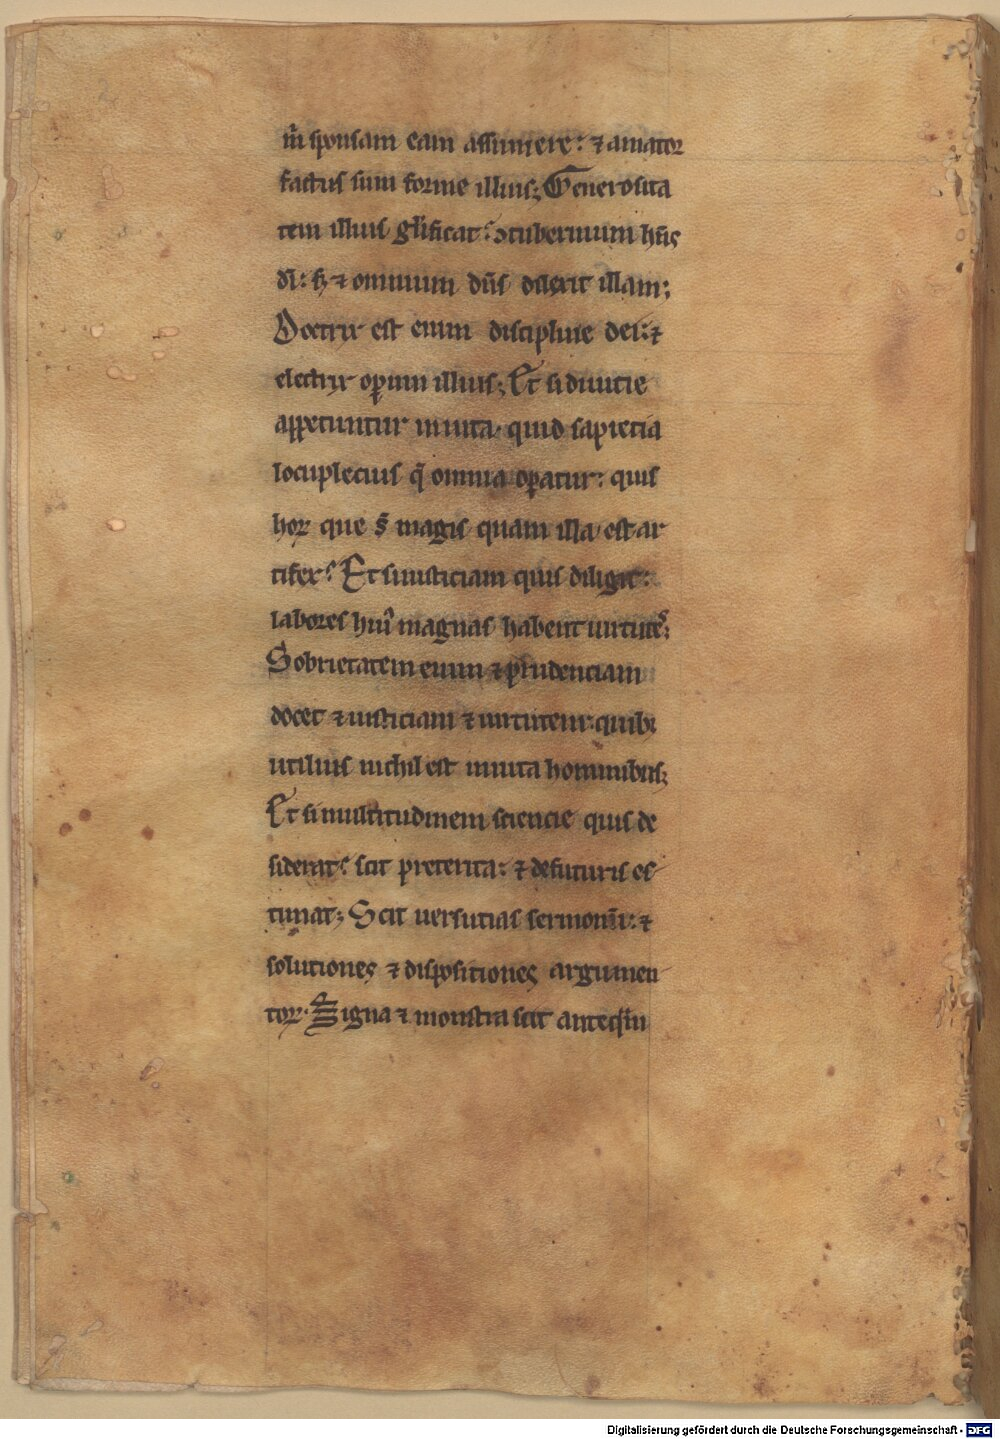 m̄ sponsam eam assumere: ⁊ amator
factus sum forme illius; Generosita
tem illius gl̄ificat: ɔtubernium hn̄s
dī: sꝫ ⁊ omnium dn̄s dilexit illam;
Doctrix est enim discipline dei: ⁊
electrix oꝑum illius; Et si diuitie
appetuntur in uita, quid sapiētia
locupletius q̄ omnia oꝑatur: quis
hoꝝ que s̄ magis quam illa est ar
tifex? Et si iusticiam quis diligit:
labores hui᷒ magnas habent uirtutes;
Sobrietatem enim ⁊ prudenciam
docet ⁊ iusticiam ⁊ uirtutem: quibꝫ
utilius nichil est in uita hominibus;
Et si multitudinem sciencie quis de
siderat: scit preterita: ⁊ de futuris es
timat; Scit uersutias sermonū: ⁊
solutiones ⁊ dispositiones argumen
toꝝ. Signa ⁊ monstra scit anteq̄m
Digitalisierung gefördert durch die Deutsche Forschungsgemeinschaft - DFG